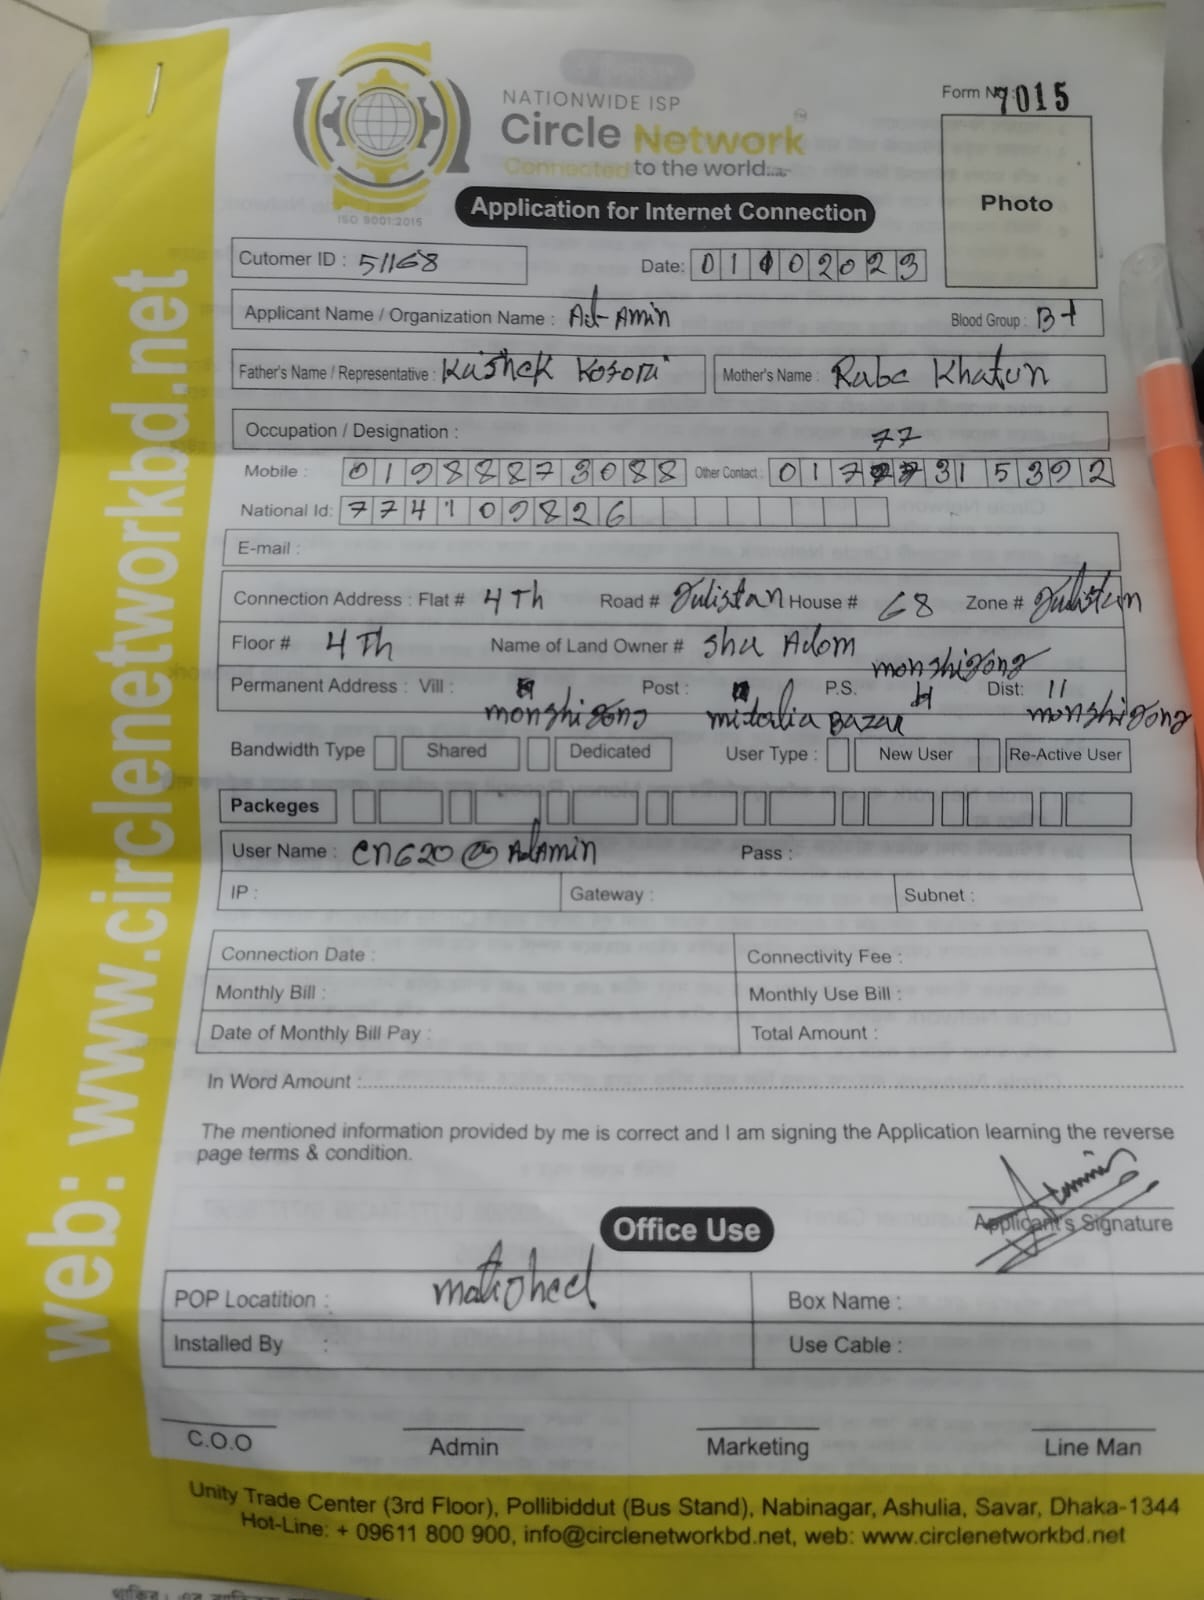 NATIONWIDE ISP
Circle Network
Connected to the world....
ISO 9001:2015
Form No: 7015
Photo
Application for Internet Connection
Cutomer ID : 51168
Date: 01102023
Applicant Name / Organization Name : Al-Amin
Blood Group : B+
Father's Name / Representative :
Mother's Name : Rabe Khatun
Occupation / Designation :
77
Mobile : 01988873088 Other Contact : 017 315392
National Id: 774109826
E-mail :
Connection Address : Flat # 4Th Road # Gulistan House # 68 Zone # Gulistan
Floor # 4Th Name of Land Owner # Sha Adom
monshigong
Permanent Address : Vill : Post : P.S. Dist: 11
monshigong mitalia Bazar monshigong
Bandwidth Type Shared Dedicated User Type : New User Re-Active User
Packeges
User Name : cn620@AlAmin Pass :
IP : Gateway : Subnet :
Connection Date : Connectivity Fee :
Monthly Bill : Monthly Use Bill :
Date of Monthly Bill Pay : Total Amount :
In Word Amount :
The mentioned information provided by me is correct and I am signing the Application learning the reverse
page terms & condition.
Applicant's Signature
Office Use
POP Locatition : Box Name :
Installed By : Use Cable :
C.O.O Admin Marketing Line Man
Unity Trade Center (3rd Floor), Pollibiddut (Bus Stand), Nabinagar, Ashulia, Savar, Dhaka-1344
Hot-Line: + 09611 800 900, info@circlenetworkbd.net, web: www.circlenetworkbd.net
web: www.circlenetworkbd.net